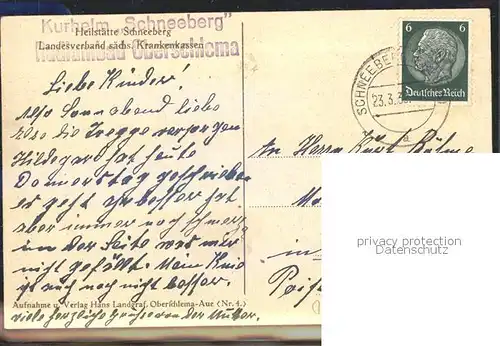 Kurheim „Schneeberg"
Heilstätte Schneeberg
Landesverband sächs. Krankenkassen
Radiumbad Oberschlema
6 6
Deutsches Reich
SCHNEEBERG
23.3.3
Liebe Kinder!
Also Sonnabend liebe
also die versorgen
Hildegard hat heute
Donnerstag geschrieben
es geht besser hat
aber immer noch schmerz
in der Seite was mir
nicht gefällt. Mein Knie
ist noch nicht besser.
Aufnahme u. Verlag Hans Landgraf, Oberschlema-Aue (Nr. 4.)
viele herzliche Grüsse von der Mutter.
An Herrn Kurt Böhme
in
privacy protection
Datenschutz